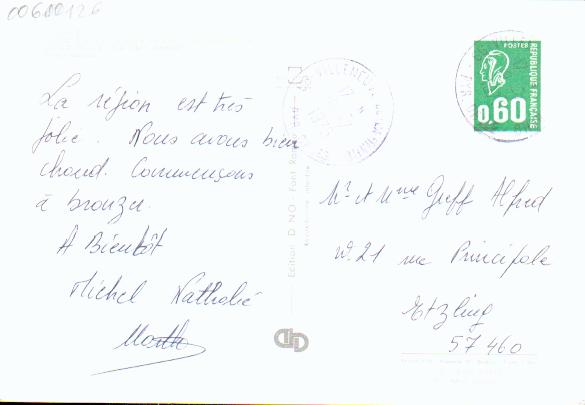 00680126
La région est très
jolie. Nous avons bien
chaud. Commençons
à bronzer.
A Bientôt
Michel Nathalie
Marthe
Edition D'NO
POSTES
RÉPUBLIQUE FRANÇAISE
0,60
Mr et Mme Greff Alfred
N° 21 rue Principale
Etzling
57460